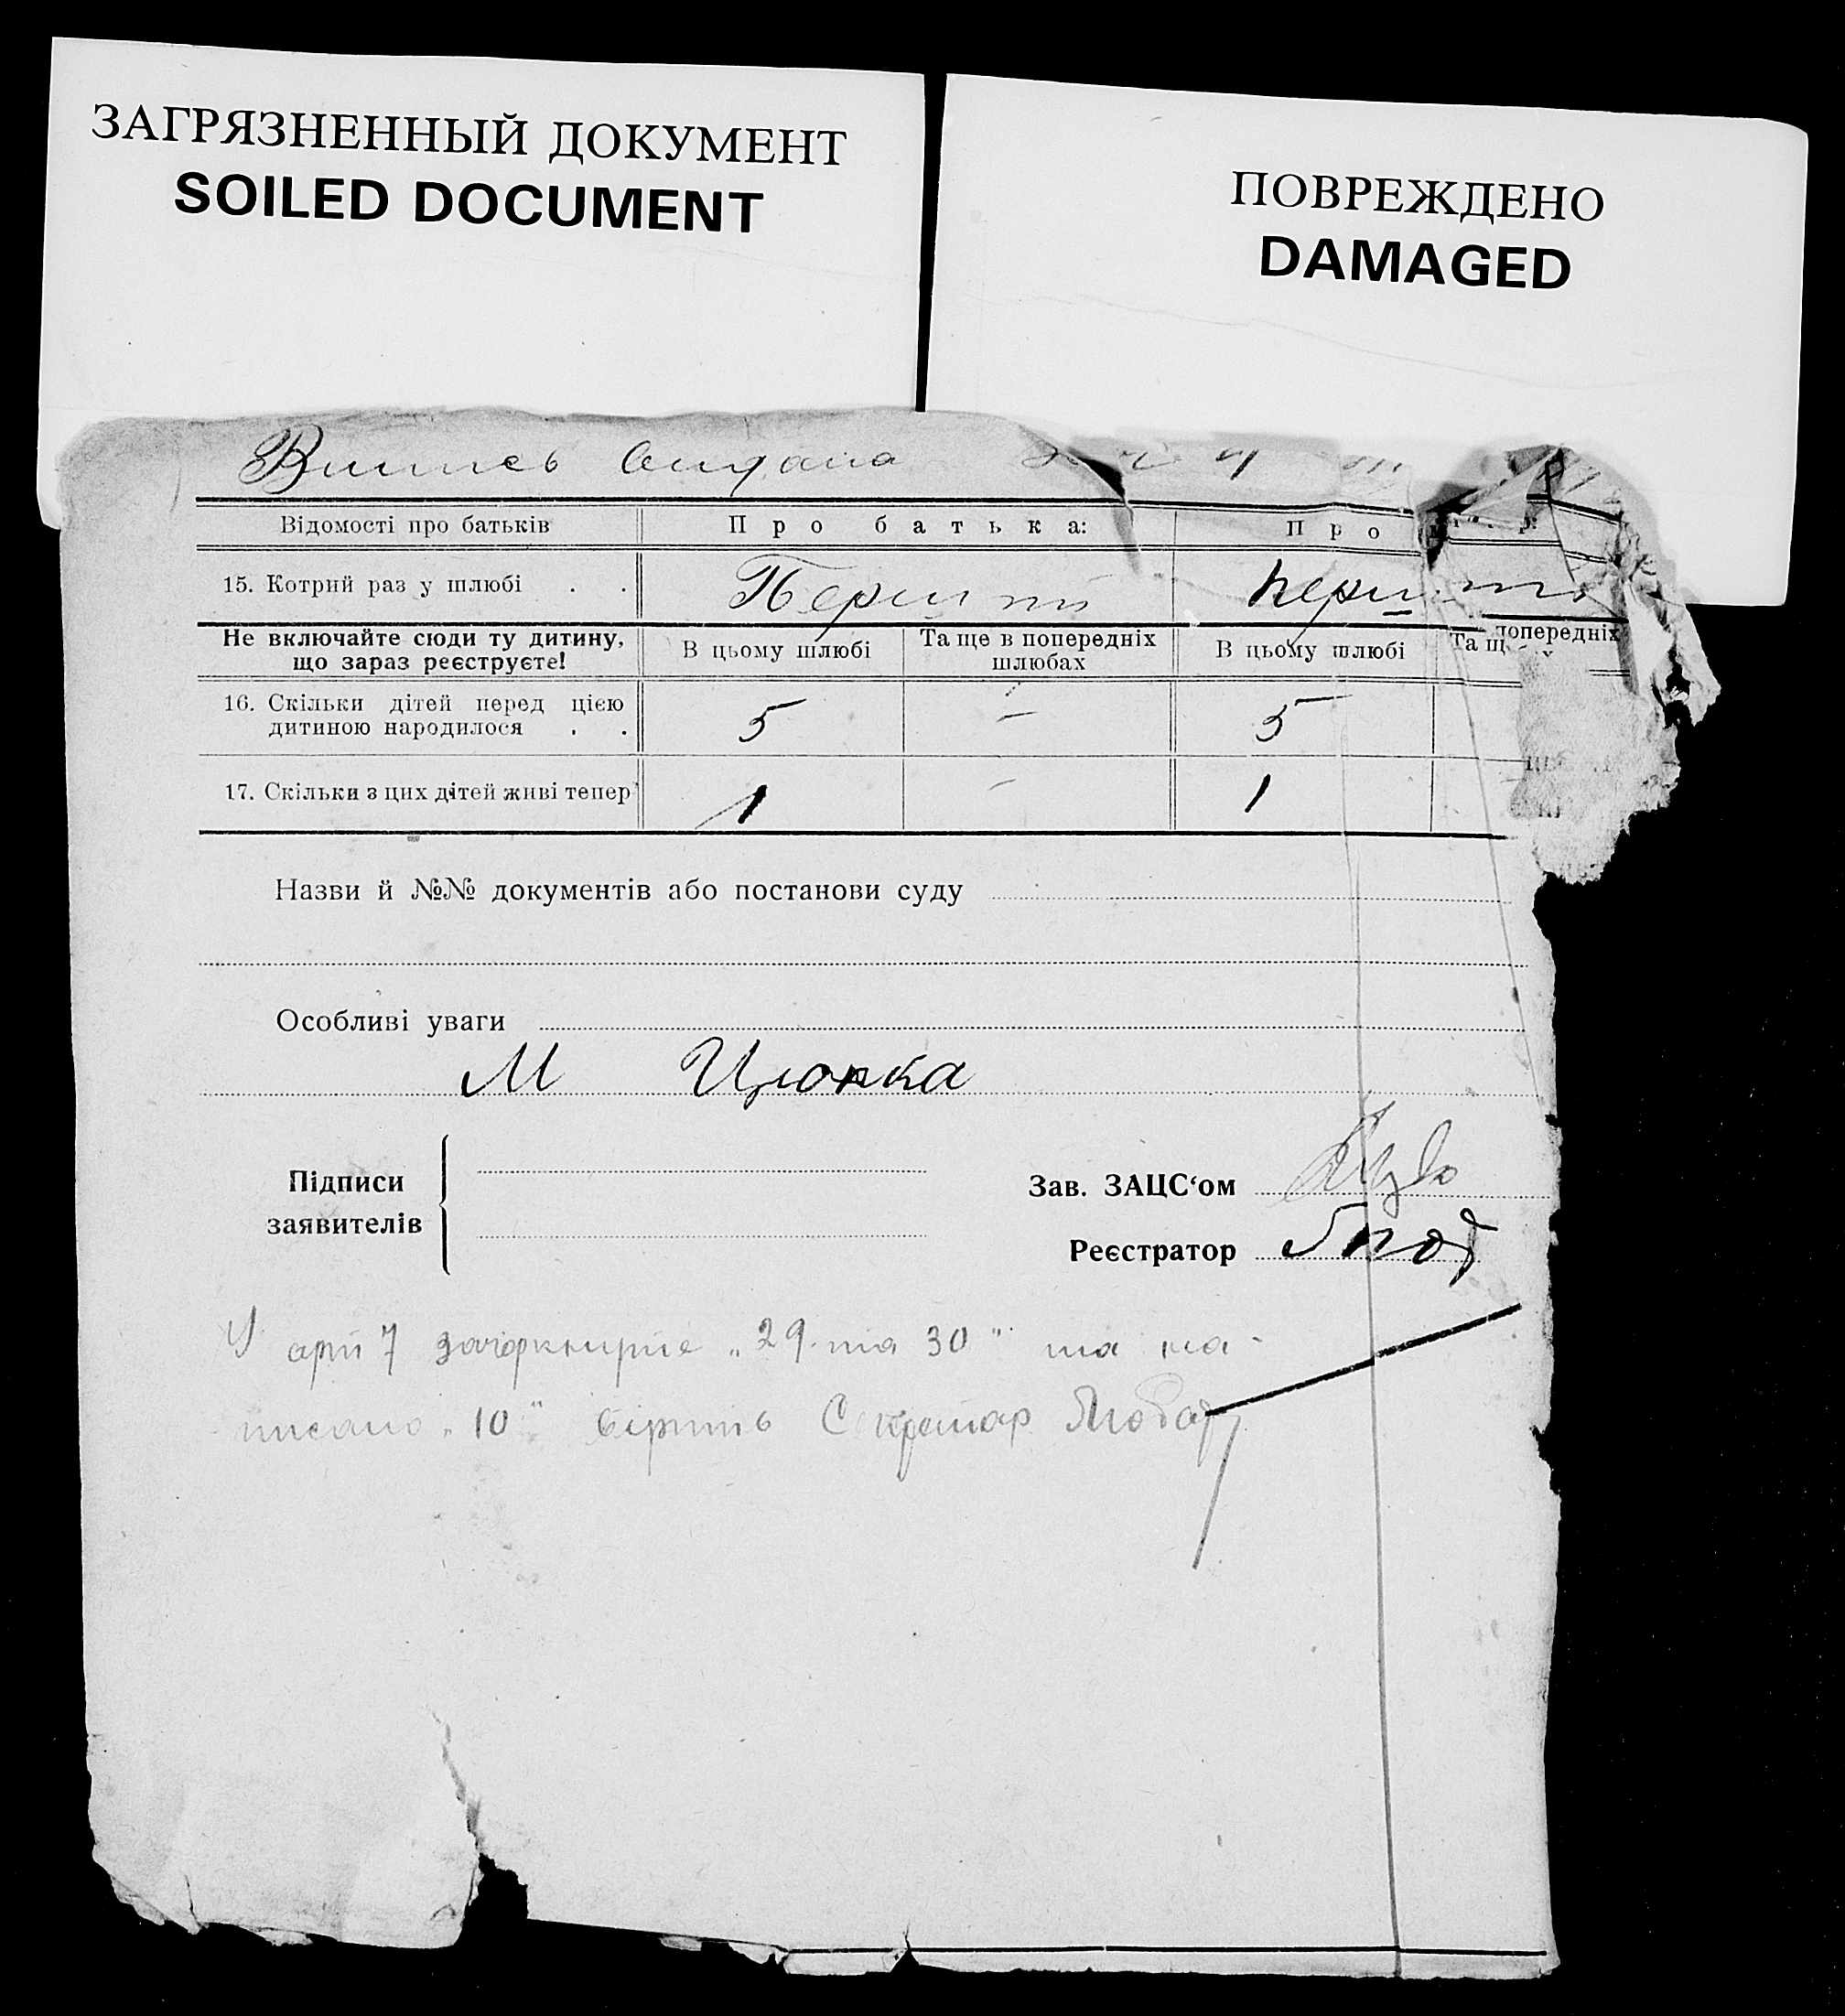 ЗАГРЯЗНЕННЫЙ ДОКУМЕНТ
SOILED DOCUMENT
ПОВРЕЖДЕНО
DAMAGED
Випись видана
Відомості про батьків Про батька: Про
15. Котрий раз у шлюбі . . Перший перш
Не включайте сюди ту дитину, що зараз реєструєте! В цьому шлюбі Та ще в попередніх шлюбах В цьому шлюбі Та щ попередніх
16. Скільки дітей перед цією дитиною народилося . . 5 – 5
17. Скільки з цих дітей живі тепер 1 – 1
Назви й №№ документів або постанови суду
Особливі уваги
М
Підписи заявителів
Зав. ЗАЦС‘ом
Реєстратор
У арт 7 „29 та 30" та на-
писано „10" вірить Секретар